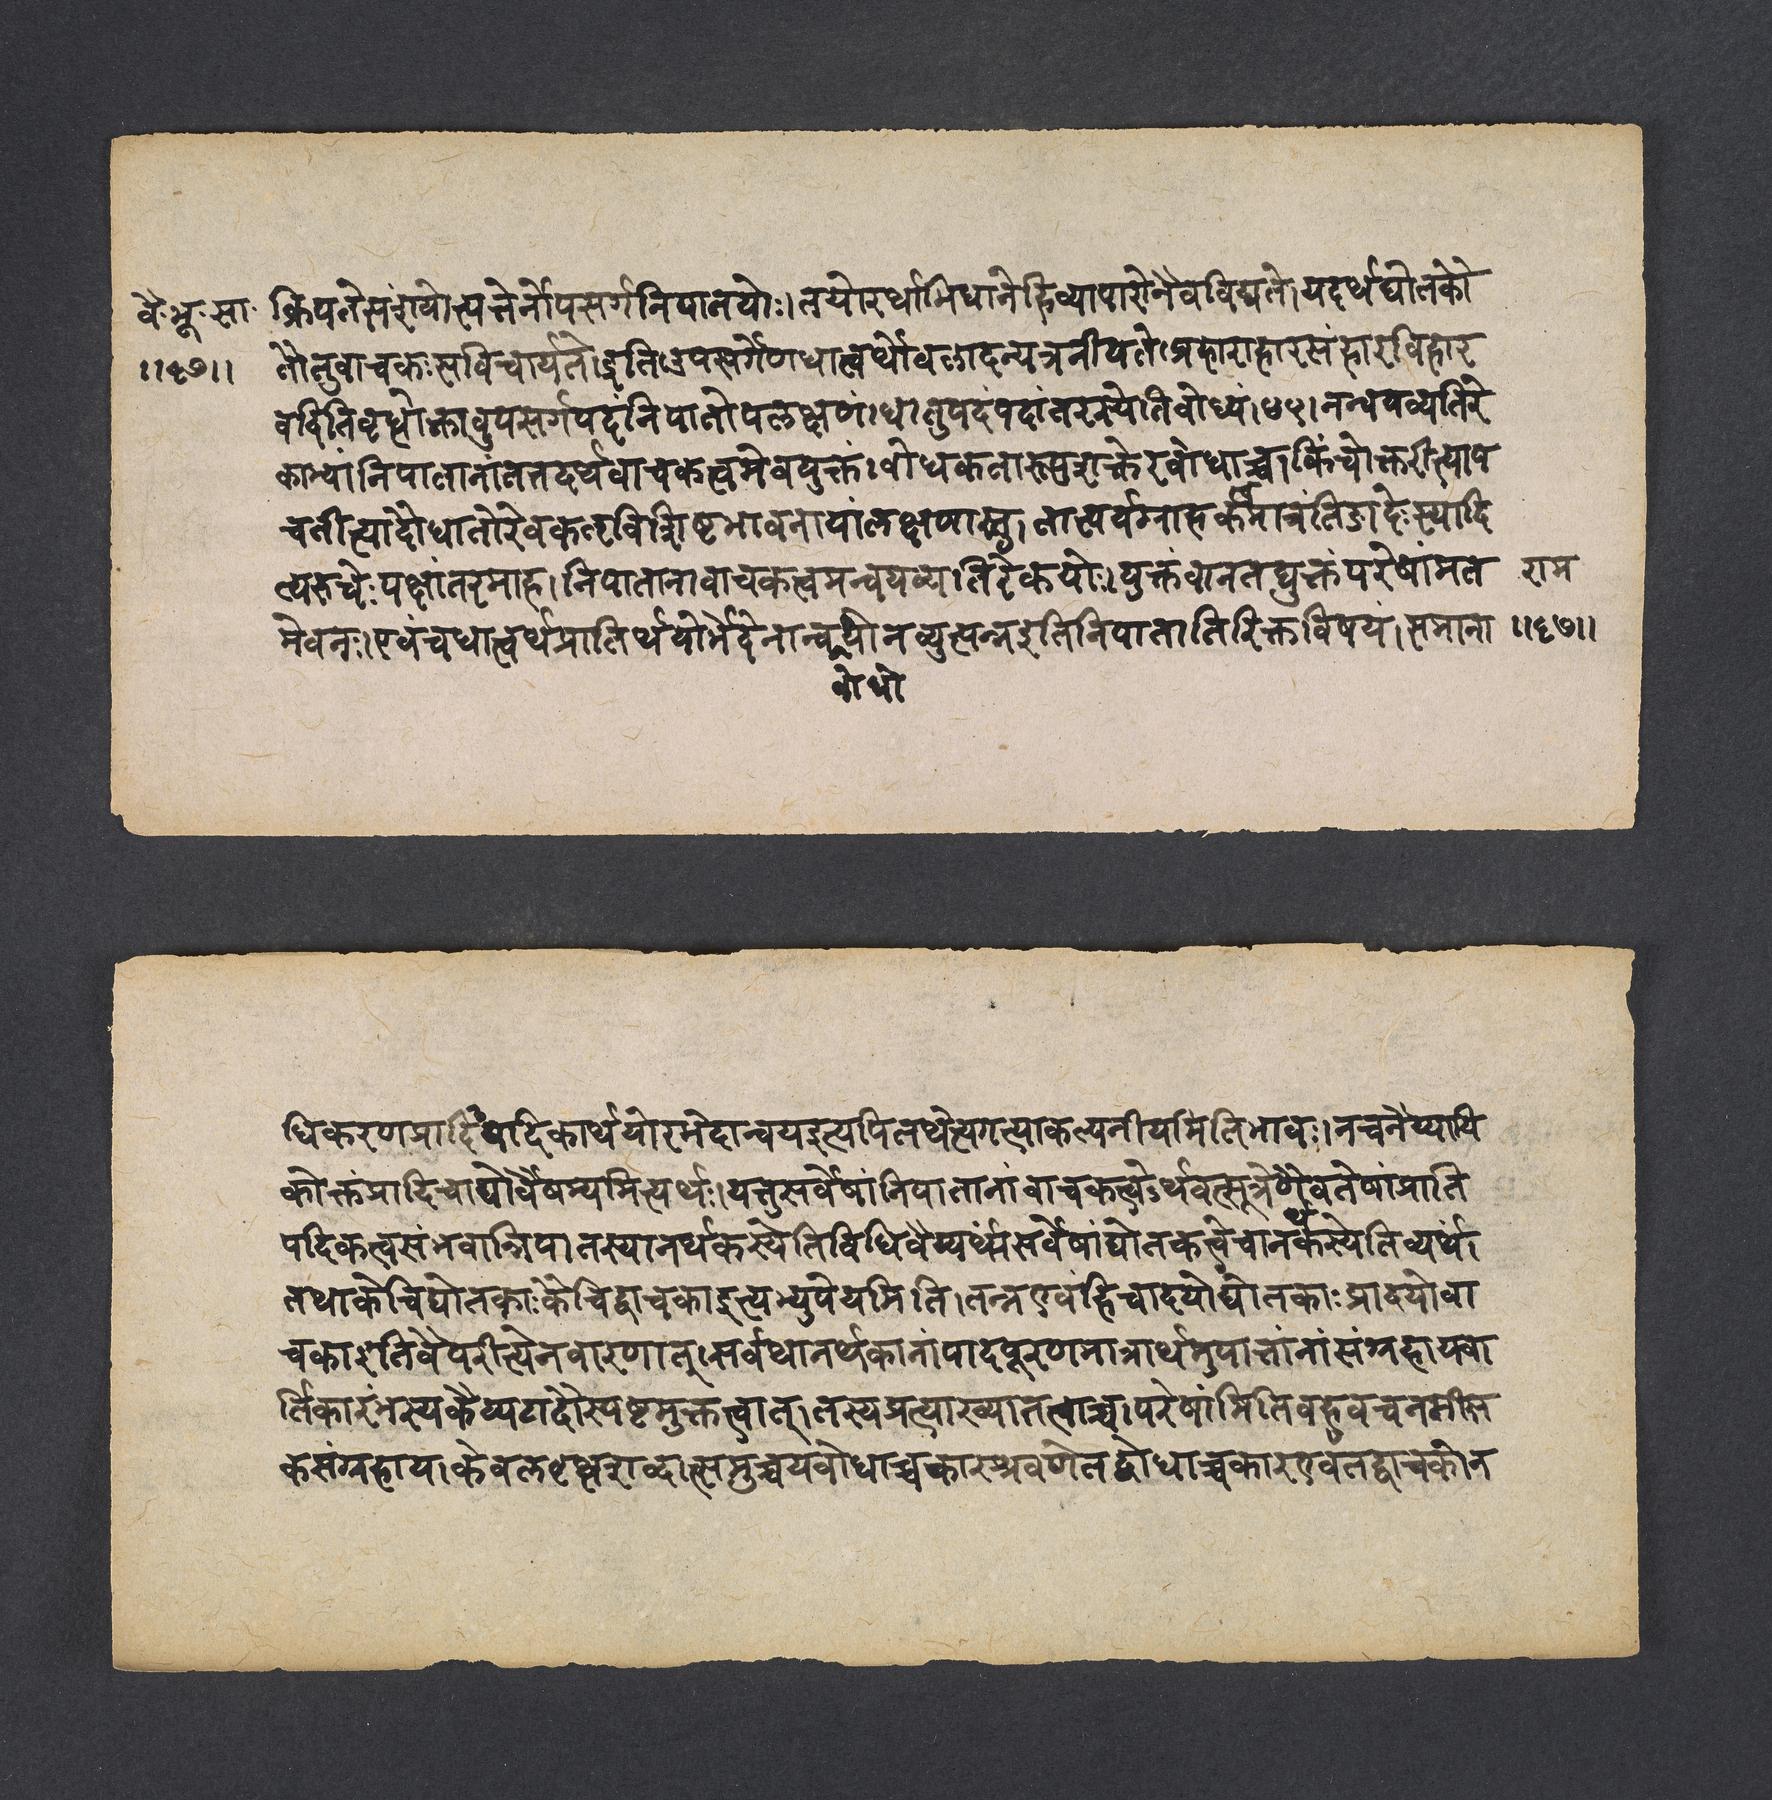 वै·भू·सा·
॥६७॥
क्रिपतेसशंयोत्पत्तेर्नोपसर्गनिपातयोः।तयोरर्थाभिधानेहिव्यापारोनैवविद्यते।यदर्थद्योतकौ
तौतुवाचकःसविचार्यते।इति।उपसर्गेणधात्वर्थोबलादन्यत्रनीयते।प्रहाराहारसंहारविहार
वदितिवृद्धोक्तावुपसर्गपदंनिपातोपलक्षणं।धातुपदंपदांतरस्येतिबोध्यं।४५।नन्वयव्यतिरे
काभ्यांनिपातानांतत्तदर्थवाचकत्वमेवयुक्तं।बोधकतारूपशक्तेरबाधाच्च।किंचोक्तरीत्याप
चतीत्यादौधातोरेवकतृविशिष्टभावनायांलक्षणास्तु।तात्पर्यग्राहकमात्रंतिङादेःस्यादि
त्यरुचेःपक्षांतरमाह।निपातानावाचकत्वमन्वयव्यतिरेकयोः।युक्तंवानतद्युक्तंपरेषांमत
मेवनः।एवंचधात्वर्थप्रातिर्थयोर्भेदेनान्वयोनव्युत्पन्नइतिनिपातातिरिक्तविषयं।समाना
बोधो
राम
॥६७॥
धिकरणप्रादिपदिकार्थयोरभेदान्वयइत्यपितथेत्यगत्याकल्पनीयमितिभावः।नचनैय्यायि
कोक्तंप्रादिचाद्योर्वैषम्यमित्यर्थः।यत्तुसर्वेषांनिपातानांवाचकत्वेऽर्थवत्सूत्रेणैवतेषांप्राति
पदिकत्वसंभवान्निपातस्यानर्थकस्येतिविधिवैय्यर्थ्यंसर्वेषांद्योतकत्वेचानर्थकस्येतिव्यर्थं।
तथाकेचिद्योतकाःकेचिद्वाचकाइत्यभ्युपेयमिति।तन्नएवंहिचादयोद्योतकाःप्रादयोवा
चकाइतिवैपरीत्येनवारणात्।सर्वथानर्थकानांपादपूरणमात्रार्थमुपात्तांनांसंग्रहायवा
र्तिकारंभस्यकैय्यटादौस्पष्टमुक्तत्वात्।तस्यप्रत्याख्यातत्वाच्च।परेषांमितिबहुवचनमीमां
कसंग्रहाय।केवलवृक्षशब्दात्समुच्चयबोधाच्चकारश्रवणेतद्बोधाच्चकारएवतद्वाचकोन